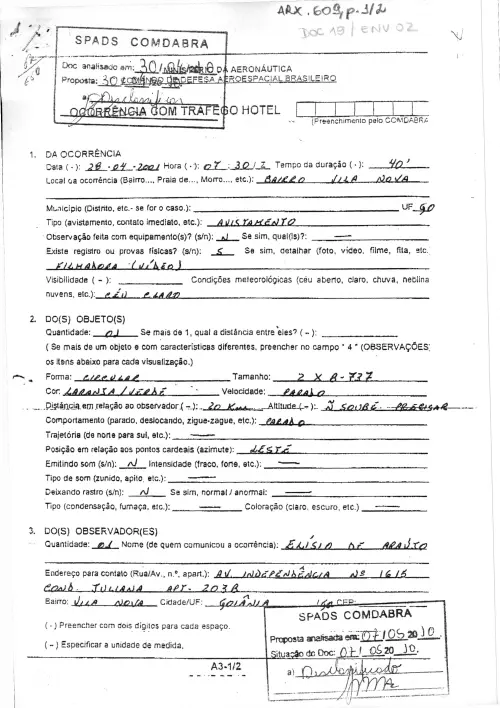 ARX. 609, p. 1/2
DOC 19 / ENV 02
SPADS COMDABRA
Doc analisado em: 30/04/2010
MINISTÉRIO DA AERONÁUTICA
Proposta: COMANDO DE DEFESA AEROESPACIAL BRASILEIRO
Desclassificar
OCORRÊNCIA COM TRAFEGO HOTEL
(Preenchimento pelo COMDABRA
1. DA OCORRÊNCIA
Data (·): 28-04-2001 Hora (·): 07:30/Z Tempo da duração (·): 40'
Local da ocorrência (Bairro..., Praia de..., Morro..., etc.): BAIRRO VILA NOVA
Município (Distrito, etc.- se for o caso.): UF GO
Tipo (avistamento, contato imediato, etc.): AVISTAMENTO
Observação feita com equipamento(s)? (s/n): N Se sim, qual(is)?:
Existe registro ou provas físicas? (s/n): S Se sim, detalhar (foto, vídeo, filme, fita, etc.
FILMADORA (VÍDEO)
Visibilidade (~): Condições meteorológicas (céu aberto, claro, chuva, neblina
nuvens, etc.): CÉU CLARO
2. DO(S) OBJETO(S)
Quantidade: 01 Se mais de 1, qual a distância entre eles? (~):
( Se mais de um objeto e com características diferentes, preencher no campo " 4 " (OBSERVAÇÕES)
os itens abaixo para cada visualização.)
Forma: CIRCULAR Tamanho: 2 X B-737
Cor: LARANJA / VERDE Velocidade: PARADO
Distância em relação ao observador (~): 20 Km Altitude (~): Ñ SOUBE PRECISAR
Comportamento (parado, deslocando, zigue-zague, etc.): PARADO
Trajetória (de norte para sul, etc.):
Posição em relação aos pontos cardeais (azimute): LESTE
Emitindo som (s/n): N Intensidade (fraco, forte, etc.):
Tipo de som (zunido, apito, etc.):
Deixando rastro (s/n): N Se sim, normal / anormal:
Tipo (condensação, fumaça, etc.): Coloração (claro, escuro, etc.)
3. DO(S) OBSERVADOR(ES)
Quantidade: 01 Nome (de quem comunicou a ocorrência): ELÍSIO DE ARAÚJO
Endereço para contato (Rua/Av., n.º, apart.): AV. INDEPENDÊNCIA Nº 1615
COND. JULIANA APT- 203B
Bairro: VILA NOVA Cidade/UF: GOIÂNIA CEP:
(·) Preencher com dois dígitos para cada espaço.
(~) Especificar a unidade de medida.
A3-1/2
SPADS COMDABRA
Proposta analisada em: 07/05 2010
Situação do Doc: 07/05 2010.
a) Desclassificado